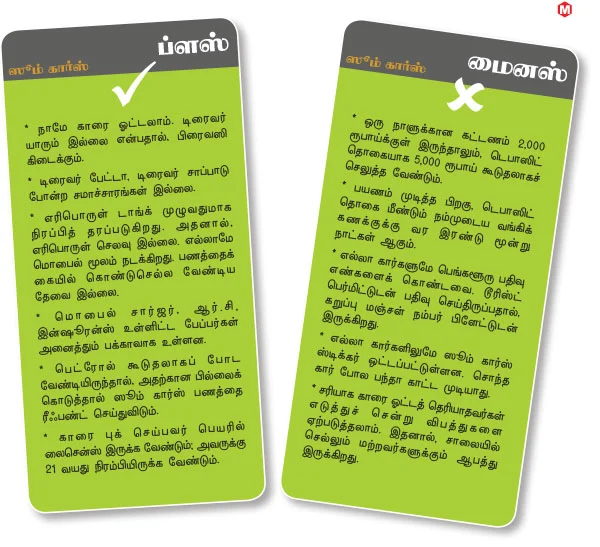 M
ப்ளஸ்
ஸூம் கார்ஸ்
* நாமே காரை ஓட்டலாம். டிரைவர்
யாரும் இல்லை என்பதால், பிரைவஸி
கிடைக்கும்.
* டிரைவர் பேட்டா, டிரைவர் சாப்பாடு
போன்ற சமாச்சாரங்கள் இல்லை.
* எரிபொருள் டாங்க் முழுவதுமாக
நிரப்பித் தரப்படுகிறது. அதனால்,
எரிபொருள் செலவு இல்லை. எல்லாமே
மொபைல் மூலம் நடக்கிறது. பணத்தைக்
கையில் கொண்டுசெல்ல வேண்டிய
தேவை இல்லை.
* மொபைல் சார்ஜர், ஆர்.சி,
இன்ஷூரன்ஸ் உள்ளிட்ட பேப்பர்கள்
அனைத்தும் பக்காவாக உள்ளன.
* பெட்ரோல் கூடுதலாகப் போட
வேண்டியிருந்தால், அதற்கான பில்லைக்
கொடுத்தால் ஸூம் கார்ஸ் பணத்தை
ரீஃபண்ட் செய்துவிடும்.
* காரை புக் செய்பவர் பெயரில்
லைசென்ஸ் இருக்க வேண்டும்; அவருக்கு
21 வயது நிரம்பியிருக்க வேண்டும்.
மைனஸ்
ஸூம் கார்ஸ்
* ஒரு நாளுக்கான கட்டணம் 2,000
ரூபாய்க்குள் இருந்தாலும், டெபாஸிட்
தொகையாக 5,000 ரூபாய் கூடுதலாகச்
செலுத்த வேண்டும்.
* பயணம் முடித்த பிறகு, டெபாஸிட்
தொகை மீண்டும் நம்முடைய வங்கிக்
கணக்குக்கு வர இரண்டு மூன்று
நாட்கள் ஆகும்.
* எல்லா கார்களுமே பெங்களூரு பதிவு
எண்களைக் கொண்டவை. டூரிஸ்ட்
பெர்மிட்டுடன் பதிவு செய்திருப்பதால்,
கறுப்பு மஞ்சள் நம்பர் பிளேட்டுடன்
இருக்கிறது.
* எல்லா கார்களிலுமே ஸூம் கார்ஸ்
ஸ்டிக்கர் ஒட்டப்பட்டுள்ளன. சொந்த
கார் போல பந்தா காட்ட முடியாது.
* சரியாக காரை ஓட்டத் தெரியாதவர்கள்
எடுத்துச் சென்று விபத்துகளை
ஏற்படுத்தலாம். இதனால், சாலையில்
செல்லும் மற்றவர்களுக்கும் ஆபத்து
இருக்கிறது.